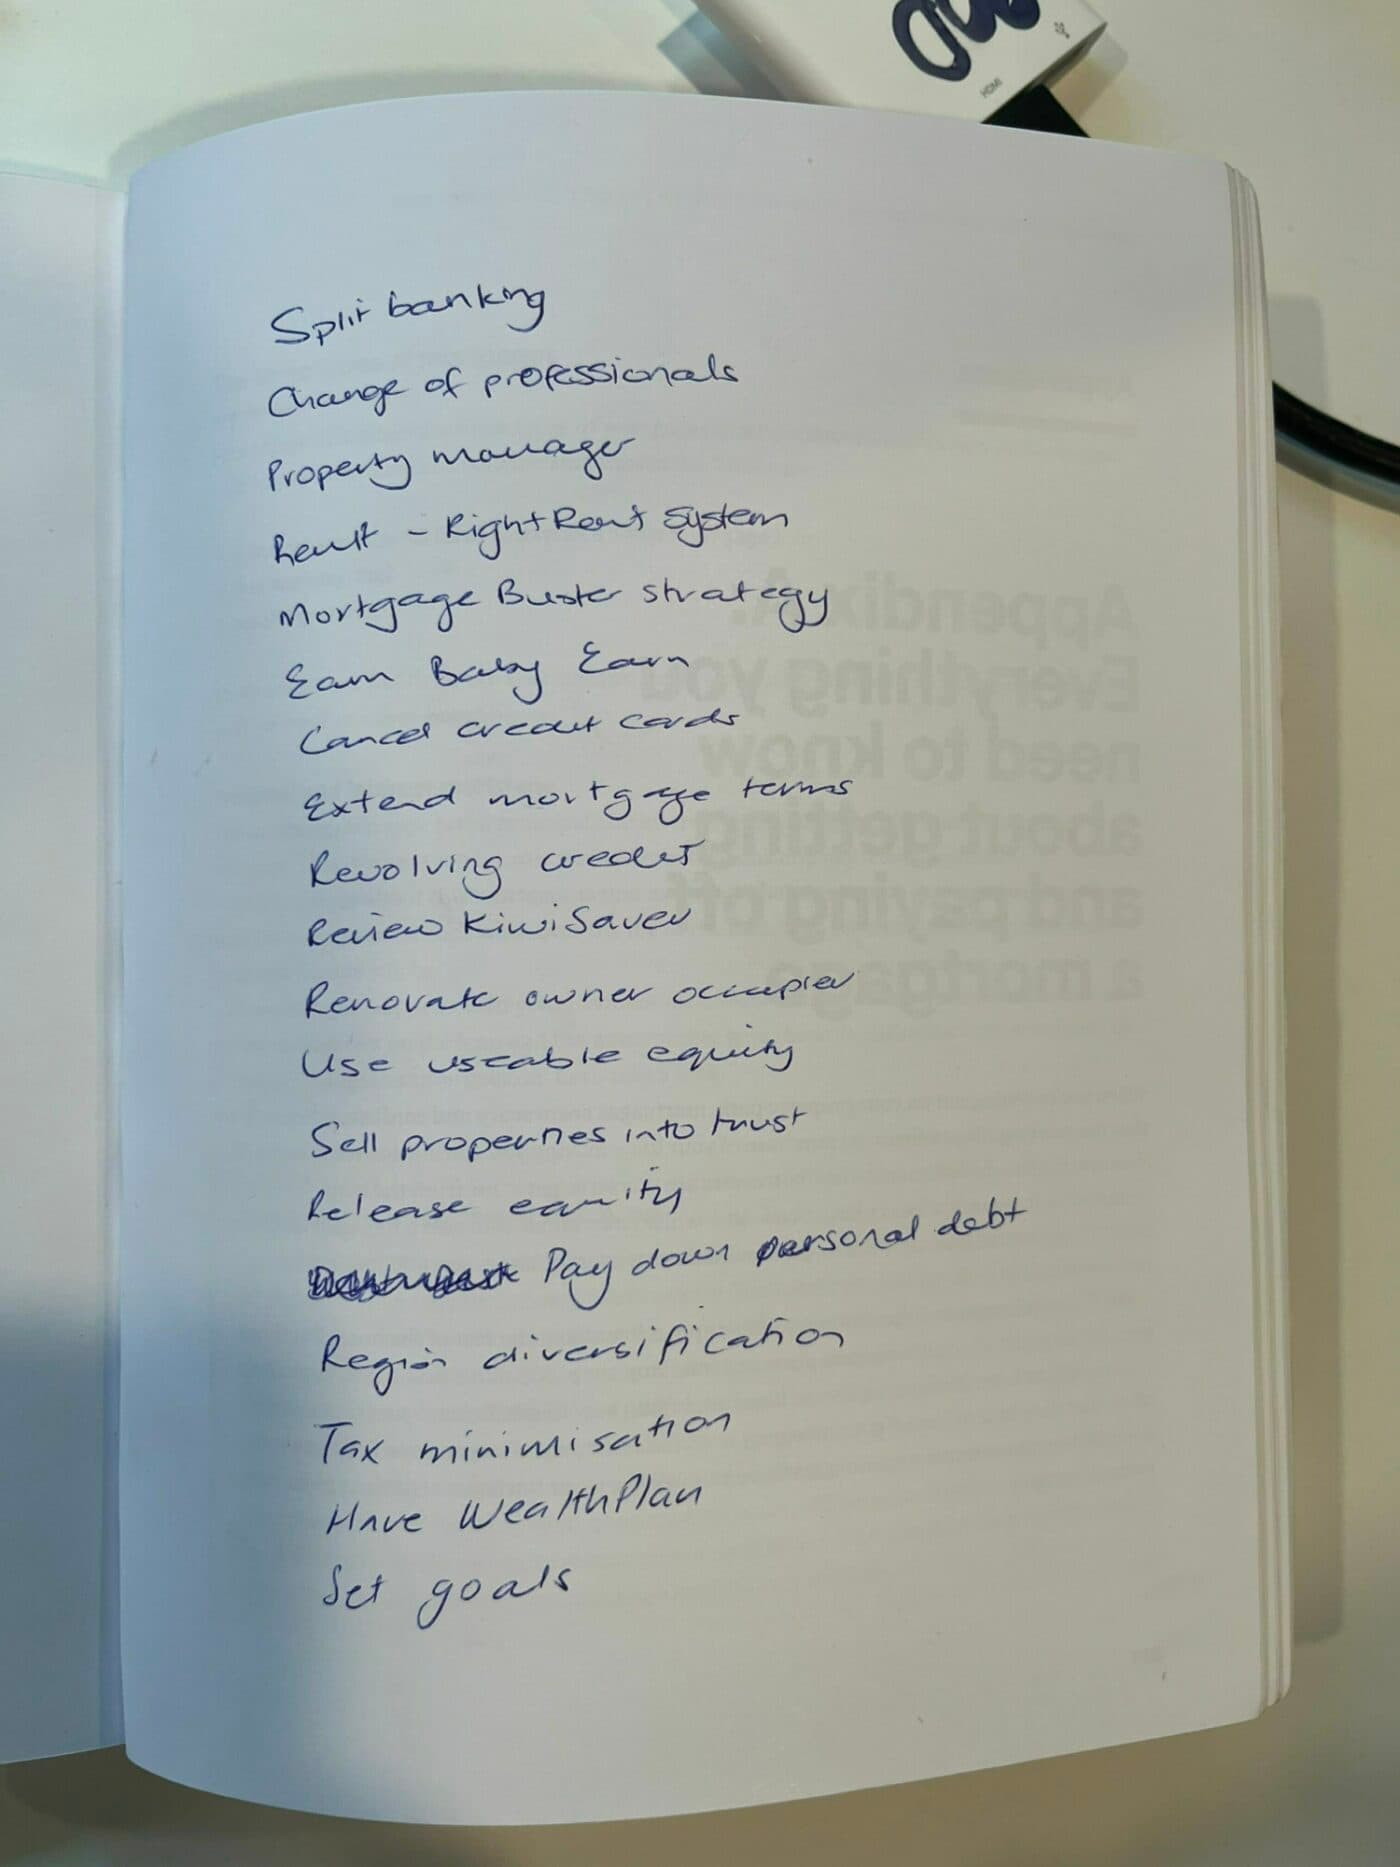 HDMI
Split banking
Change of professionals
Property manager
- RightRent system
Mortgage Buster strategy
Earn Baby Earn
Cancel credit cards
Extend mortgage terms
Revolving credit
Review KiwiSaver
Renovate owner occupier
Use useable equity
Sell properties into trust
Release equity
Pay down personal debt
Region diversification
Tax minimisation
Have WealthPlan
Set goals
Appendix A:
Everything you
need to know
about getting
and paying off
a mortgage